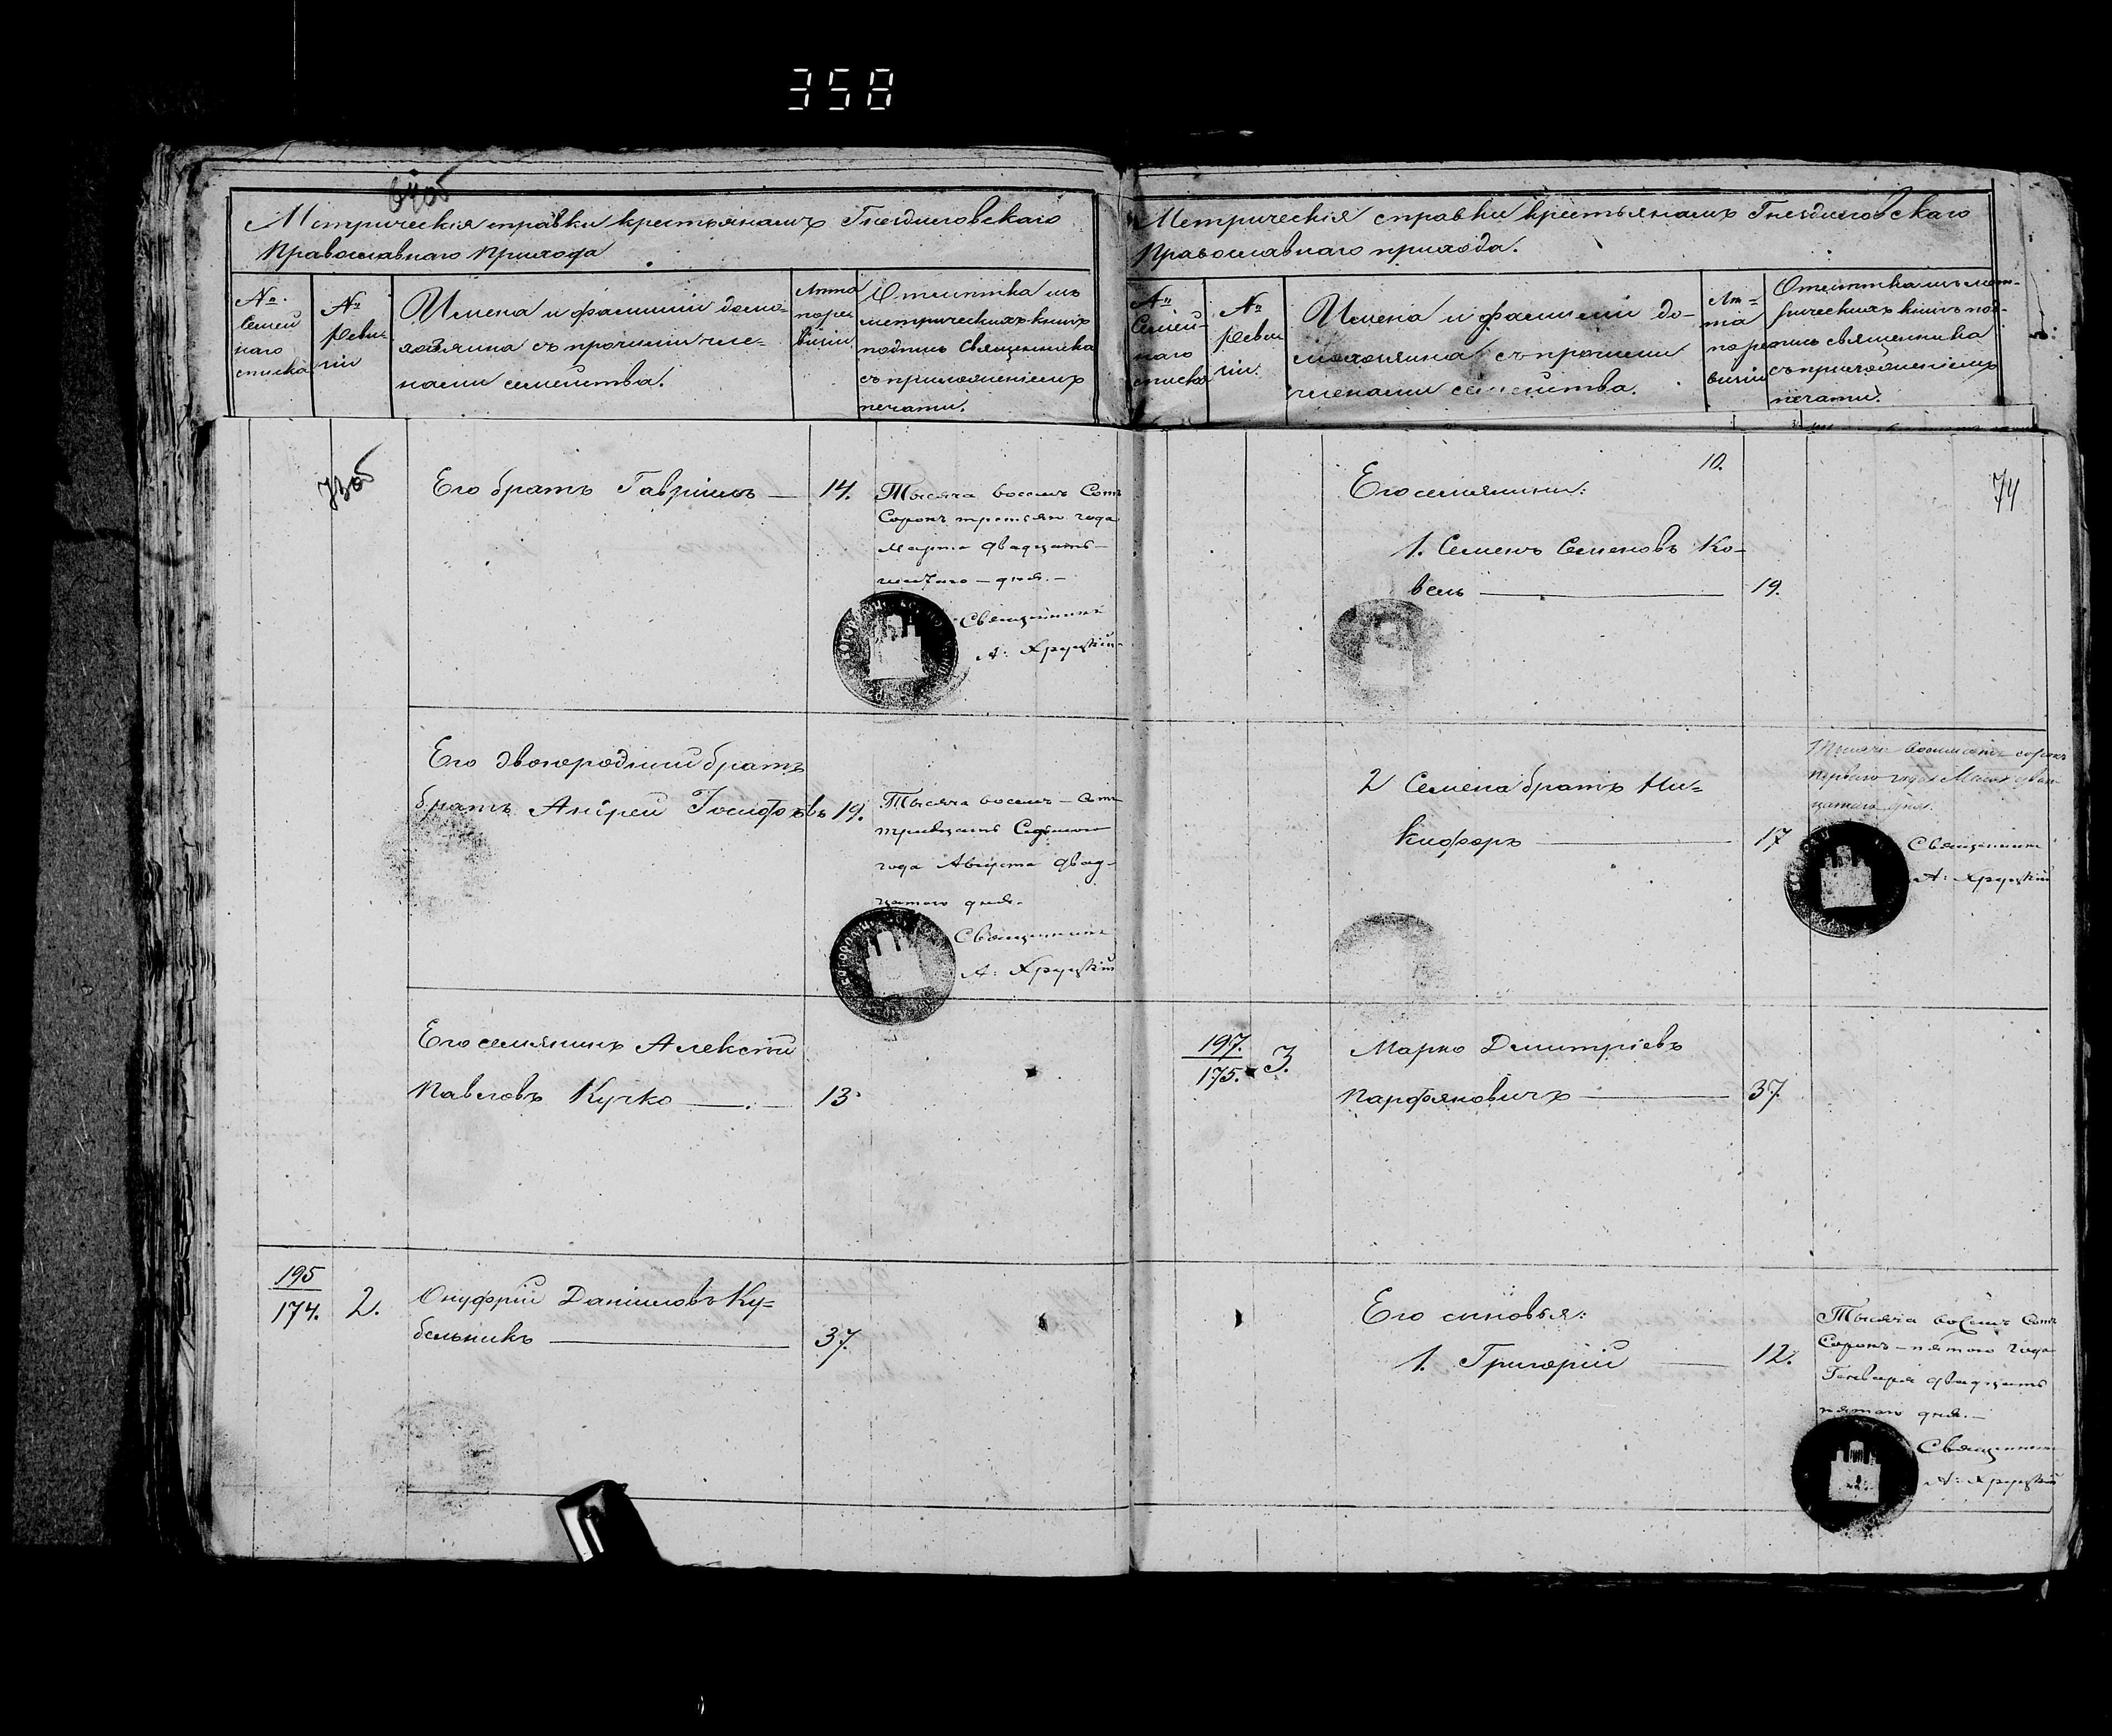 358
Метрическія справки крестьянамъ Гнездиловскаго
Православнаго Прихода
№
Семей
наго
списка
№
Реви-
зіи
Имена и фамиліи домо-
хозяина съ прочими чле-
нами семейства.
Лета
по ре
визіи
Отметка изъ
метрическихъ книгъ
подпись Священника
съ приложеніемъ
печати.
73об
Его братъ Гавріилъ — 14.
Тысяча восемь Сотъ
Сорокъ третьяго года
Марта двадцать
дня.
Священникъ
А: Хруцкій
Его двоюродный братъ
братъ Андрей Іосифовъ 19.
Тысяча восемь — сотъ
тридцать Седьмого
года Августа двад-
цатого дня.
Священникъ
А: Хруцкій
Его семянинъ Алексей
Павловъ Кучко — . — 13.
195
174. 2.
Онуфрій Даніиловъ Ку=
бельникъ — 37.
Метрическія справки крестьянамъ Гнездиловскаго
Православнаго прихода.
№
Семей-
наго
списка
№
Реви
зіи.
Имена и фамиліи до-
мохозяина съ прочими
членами семейства.
Ле=
та
по ре
визіи
Отметка изъ мет-
рическихъ книгъ под-
пись священника
съ приложеніемъ
печати.
10.
74
Его семянины:
1. Семенъ Семеновъ Ко-
вель — 19.
2 Семена братъ Ни=
кифоръ — 17
Тысяча восемьсотъ сорокъ
перваго года двад
цатаго дня.
Священникъ
А: Хруцкій
197.
175. 3.
Марко Дмитріевъ
Парфяновичъ — 37.
Его сыновья:
1. Григорій — 12.
Тысяча восемь Сотъ
Сорокъ — пятого года
Генваря двадцать
пятого дня. —
Священникъ
А: Хруцкій